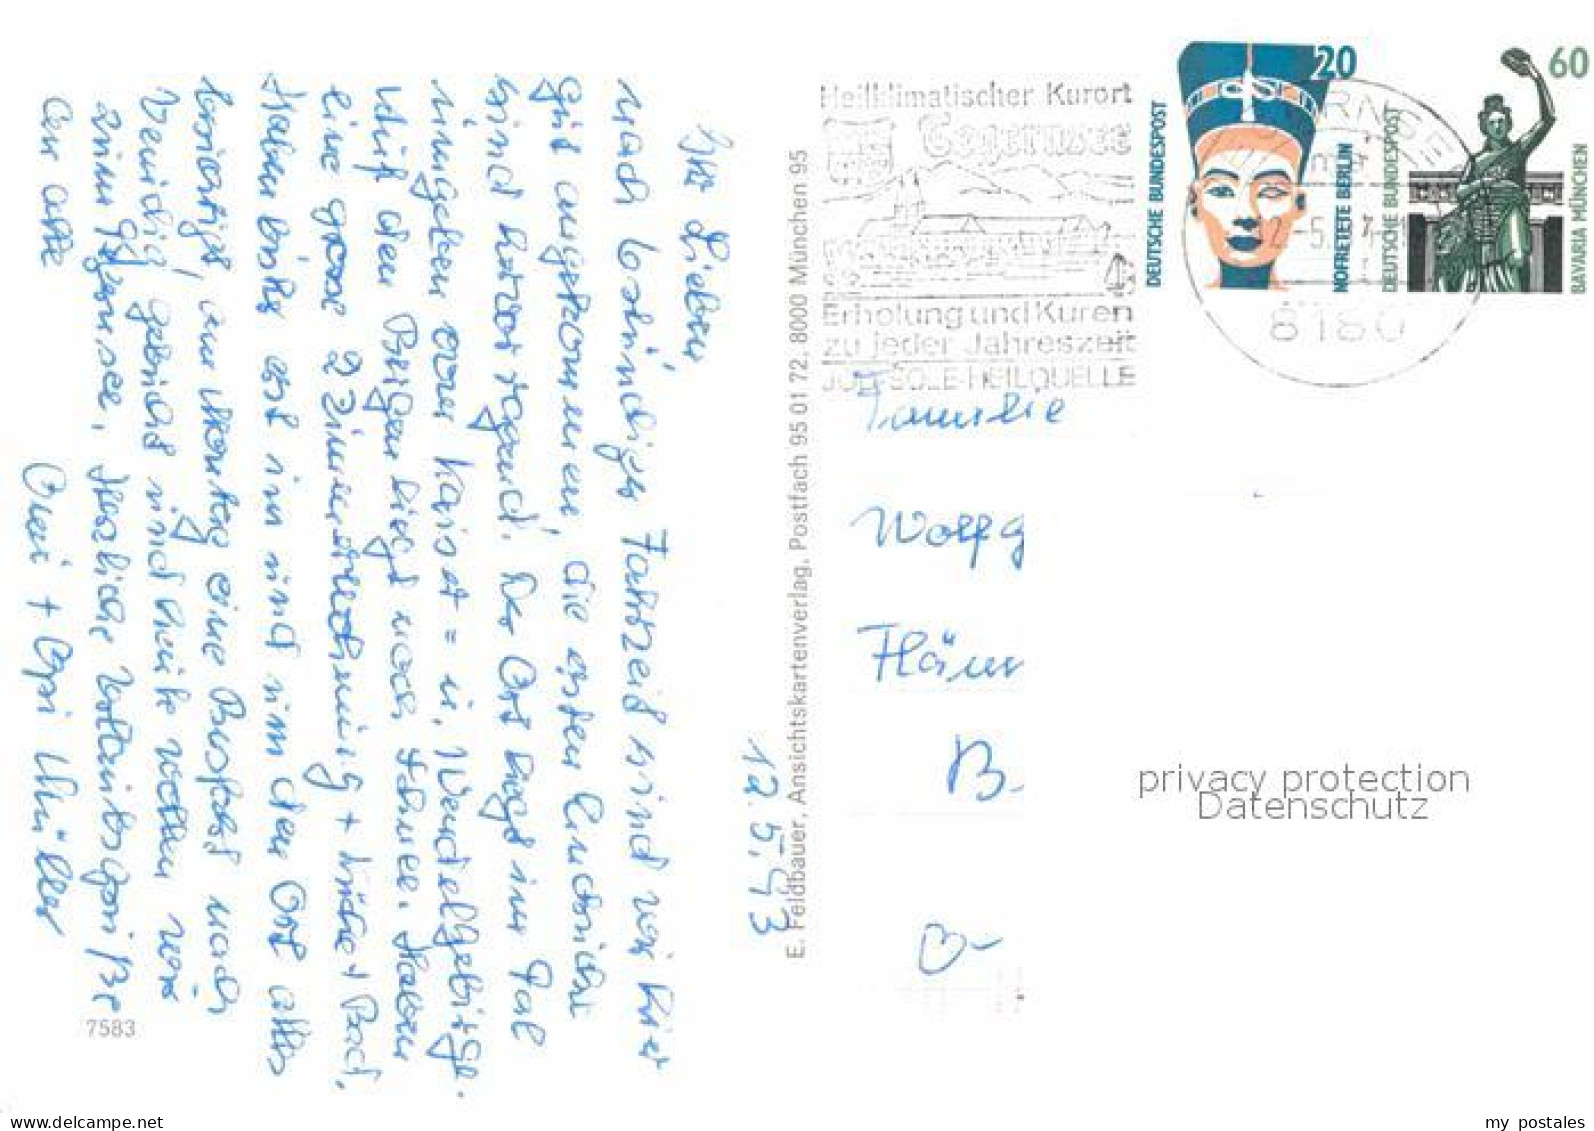 Heilklimatischer Kurort
Tegernsee
Erholung und Kuren
zu jeder Jahreszeit
JOD-SOLE-HEILQUELLE
20
DEUTSCHE BUNDESPOST
NOFRETETE BERLIN
60
DEUTSCHE BUNDESPOST
BAVARIA MÜNCHEN
8180
12.5.93
Ihr Lieben
nach stündiger Fahrzeit sind wir hier
gut angekommen, die ersten Eindrücke
sind hervorragend. Der Ort liegt im Tal
umgeben von Kaiser = u. Wendelgebirge.
Auf den Bergen liegt noch Schnee. Haben
eine grosse 2 Zimmerwohnung + Küche + Bad.
Haben bisher erst im und um den Ort alles
besichtigt, am Montag eine Busfahrt nach
Venedig gebucht und heute wollen wir
zum Tegernsee. Herzliche Urlaubsgrüße
an alle
E. Feldbauer, Ansichtskartenverlag, Postfach 95 01 72, 8000 München 95
7583
Familie
Wolfg
B
privacy protection
Datenschutz
my postales